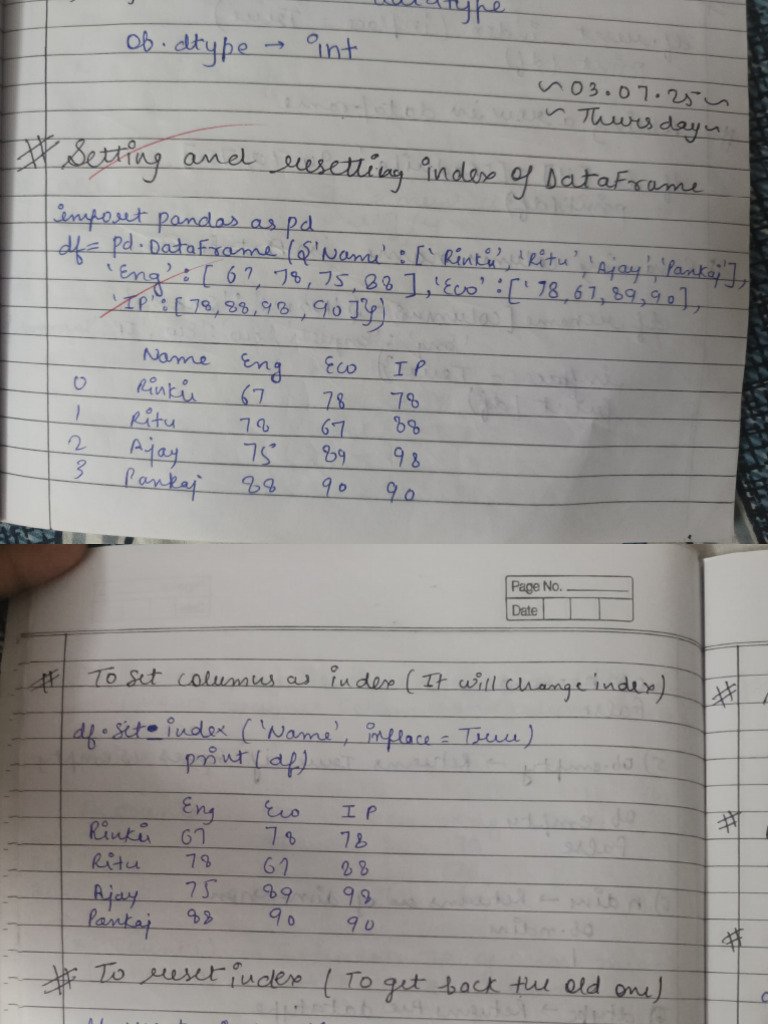 datatype
Ob.dtype → int
~03.07.25~
~Thursday~
# Setting and resetting index of DataFrame
import pandas as pd
df = pd.DataFrame({'Name':['Rinku','Ritu','Ajay','Pankaj'],
'Eng':[67,78,75,88],'Eco':['78,67,89,90],
'IP':[78,88,98,90]})
Name Eng Eco IP
0 Rinku 67 78 78
1 Ritu 78 67 88
2 Ajay 75 89 98
3 Pankaj 88 90 90
Page No.
Date
# To set columns as index (It will change index)
df.set_index('Name', inplace = True)
print(df)
Eng Eco IP
Rinku 67 78 78
Ritu 78 67 88
Ajay 75 89 98
Pankaj 88 90 90
# To reset index (To get back the old one)
#
#
#